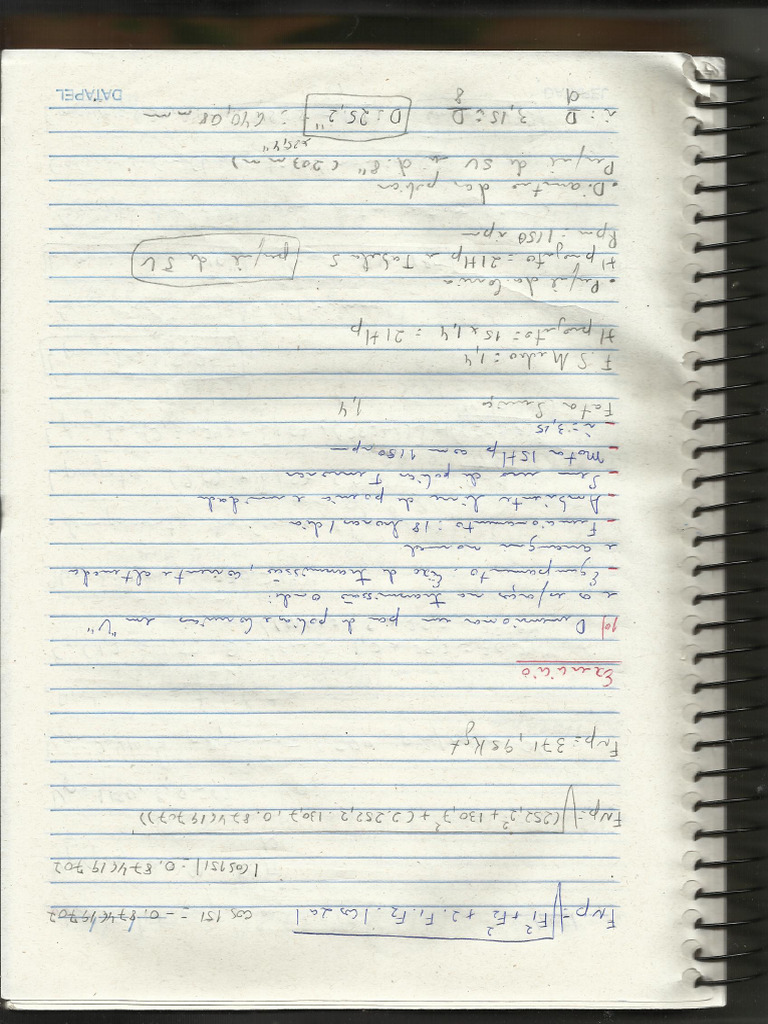 FNp = √F₁² + F₂² + 2. F₁. F₂. |cos 2a|   cos 151 = - 0,874619702
|cos 151| = 0.874619702
FNp = √(252,2² + 130,7² + (2.252,2. 130,7, 0.874619707))
FNp = 371,95 Kgf
Exercício
1º) Dimensionar um par de polias e correias em "V"
e os esforços na transmissão onde:
- Equipamento: Eixo de transmissão, corrente alternada
e arranque normal
- Funcionamento: 18 horas/dia
- Ambiente livre de poeira e umidade
- Sem uso de polias Tensoras
- Motor 15Hp com 1150 rpm
- i = 3,15
Fator Serviço   1,4
F. S Medio = 1,4
Hprojeto = 15 x 1,4 = 21Hp
• Perfil da Correia
Hprojeto = 21Hp → Tabela 5   perfil de 5V
Rpm = 1150 rpm
• Diametro das polias
Perfil de 5V → d: 8" (203 mm)
x25,4"
i = D/d   3,15 = D/8   D = 25,2" = 640,08 mm
DATAPEL